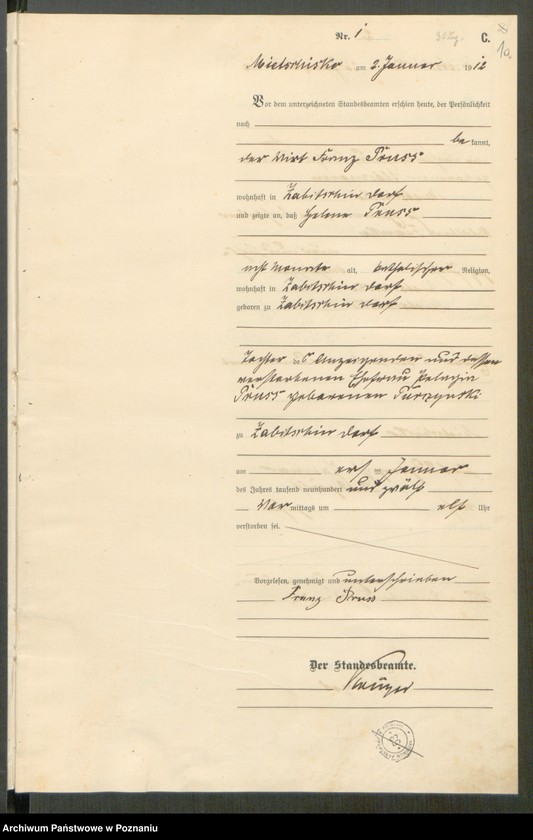 Nr. 1
C.
1a
Mietschisko am 2. Januar 1912
Vor dem unterzeichneten Standesbeamten erschien heute, der Persönlichkeit
nach
bekannt,
der Wirt Franz Pruss
wohnhaft in Zabitschin Dorf
und zeigte an, daß Helene Pruss
acht Monate alt, katholischer Religion,
wohnhaft in Zabitschin Dorf
geboren zu Zabitschin Dorf
Tochter des Anzeigenden und dessen
verstorbenen Ehefrau Pelagia
Pruss geborenen
zu Zabitschin Dorf
am erst en Januar
des Jahres tausend neunhundert und zwölf
Vor mittags um elf Uhr
verstorben sei.
Vorgelesen, genehmigt und unterschrieben
Franz Pruss
Der Standesbeamte.
Archiwum Państwowe w Poznaniu